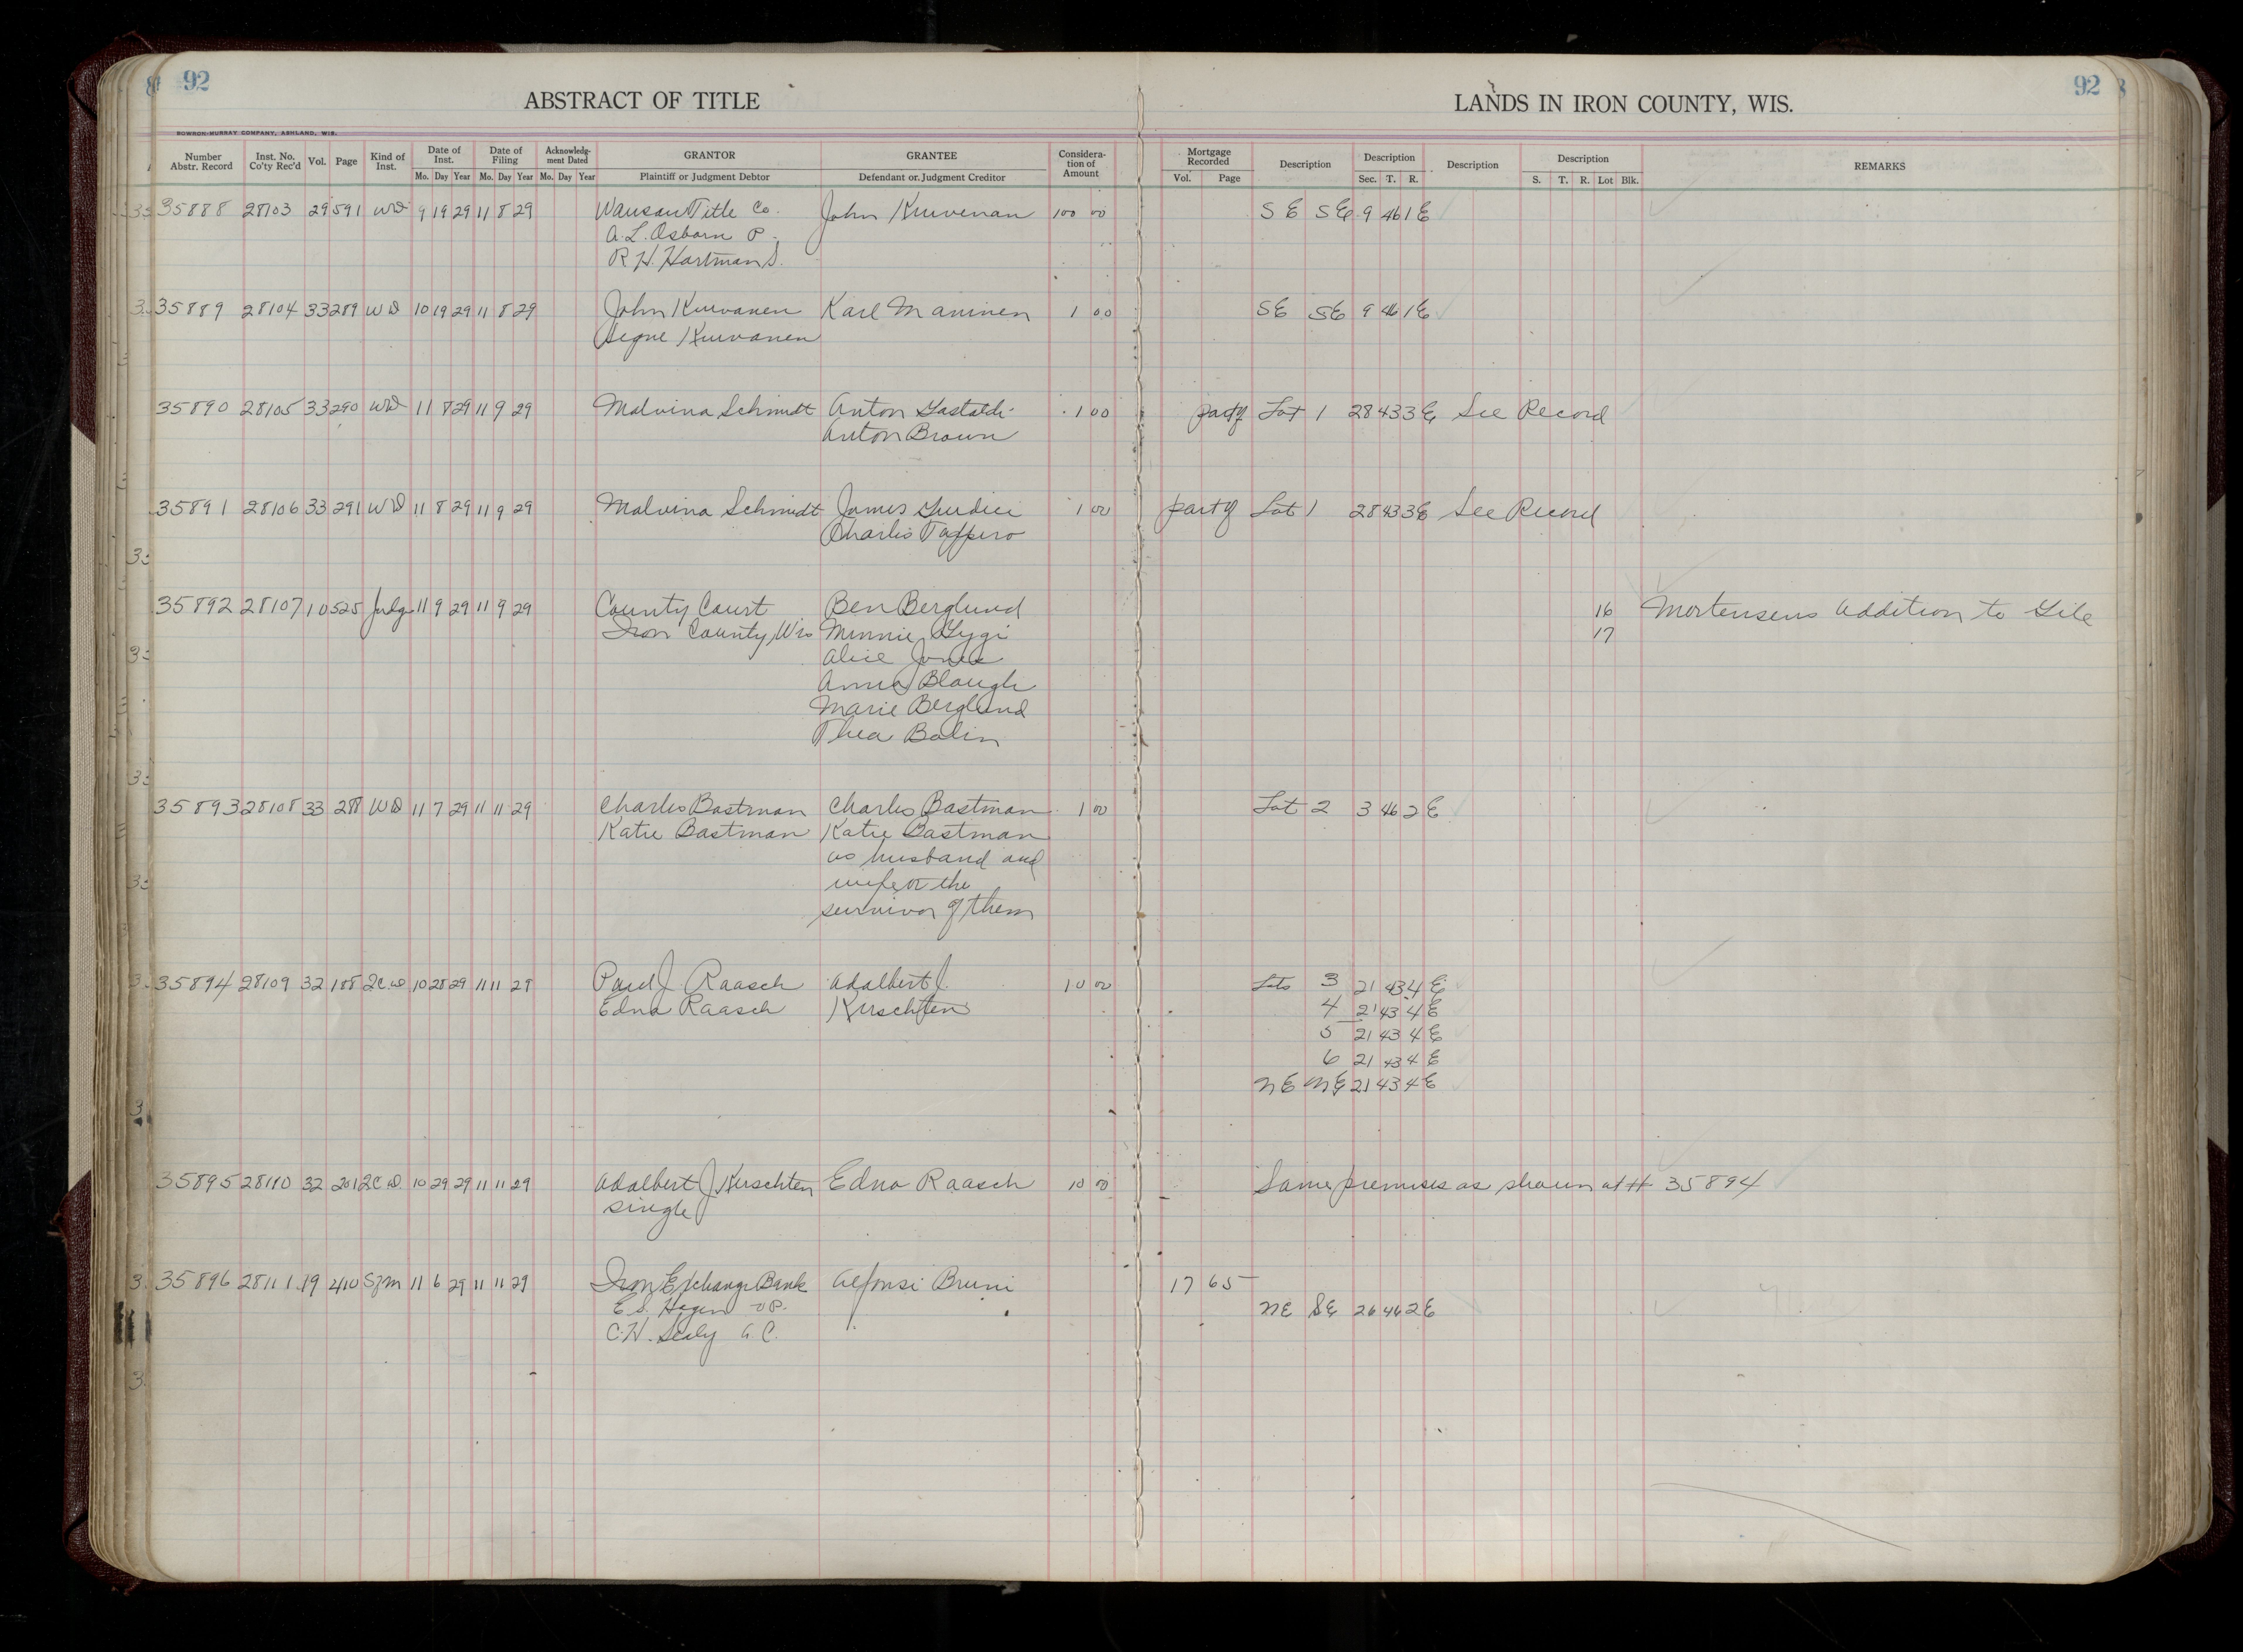 92
92
ABSTRACT OF TITLE
LANDS IN IRON COUNTY, WIS.
BOWRON-MURRAY COMPANY, ASHLAND, WIS.
Number Abstr. Record Inst. No. Co'ty Rec'd Vol. Page Kind of Inst. Date of Inst. Date of Filing Acknowledgment Dated GRANTOR GRANTEE Consideration of Amount Mortgage Recorded Description Description Description Description REMARKS
Mo. Day Year Mo. Day Year Mo. Day Year Plaintiff or Judgment Debtor Defendant or Judgment Creditor Vol. Page Sec. T. R. S. T. R. Lot Blk.
35888 28103 29 591 WD 9 19 29 11 8 29 Wausau Title Co. John Kuivenan 100 00 SE SE 9 46 1 E
A. L. Osborn P.
R. H. Hartman S.
35889 28104 33 289 WD 10 19 29 11 8 29 John Kuivanen Karl Maninen 1 00 SE SE 9 46 1 E
Signe Kuivanen
35890 28105 33 290 WD 11 8 29 11 9 29 Malvina Schmidt Anton Gastaldi 1 00 part of Lot 1 28 43 3 E See Record
Anton Brown
35891 28106 33 291 WD 11 8 29 11 9 29 Malvina Schmidt James 1 00 part of Lot 1 28 43 3 E See Record
Charles Tappero
35892 28107 10 525 Judg 11 9 29 11 9 29 County Court Ben Berglund 16 Mortensens Addition to Gile
Iron County, Wis Minnie Gygi 17
Alice Jones
Anna Blough
Marie Berglund
Thea Bolin
35893 28108 33 288 WD 11 7 29 11 11 29 Charles Bastman Charles Bastman 1 00 Lot 2 3 46 2 E
Katie Bastman Katie Bastman
as husband and
wife or the
survivor of them
35894 28109 32 188 2CD 10 28 29 11 11 29 Paul J Raasch Adalbert J. 10 00 Lots 3 21 43 4 E
Edna Raasch Kirschten 4 21 43 4 E
5 21 43 4 E
6 21 43 4 E
NE NE 21 43 4 E
35895 28110 32 201 2CD 10 29 29 11 11 29 Adalbert J Kirschten Edna Raasch 10 00 Same premises as shown at # 35894
single
35896 28111 19 410 SM 11 6 29 11 11 29 Iron Exchange Bank Alfonsi Bruni 17 65
E. S. Hagen VP. NE SE 26 46 2 E
C. H. Sealy A. C.